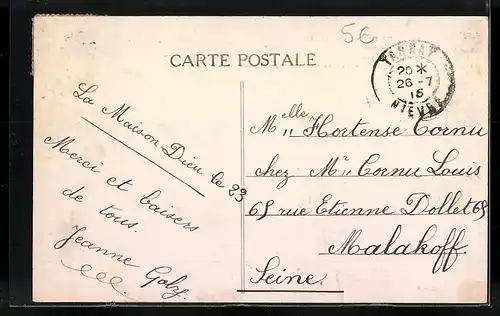 5€
CARTE POSTALE
TANNAY
20*
26-7
15
NIÈVRE
La Maison Dieu le 23
Merci et baisers
de tous.
Jeanne
Melle Hortense Cornu
chez Mr Cornu Louis
65 rue Etienne Dollet 65
Malakoff
Seine